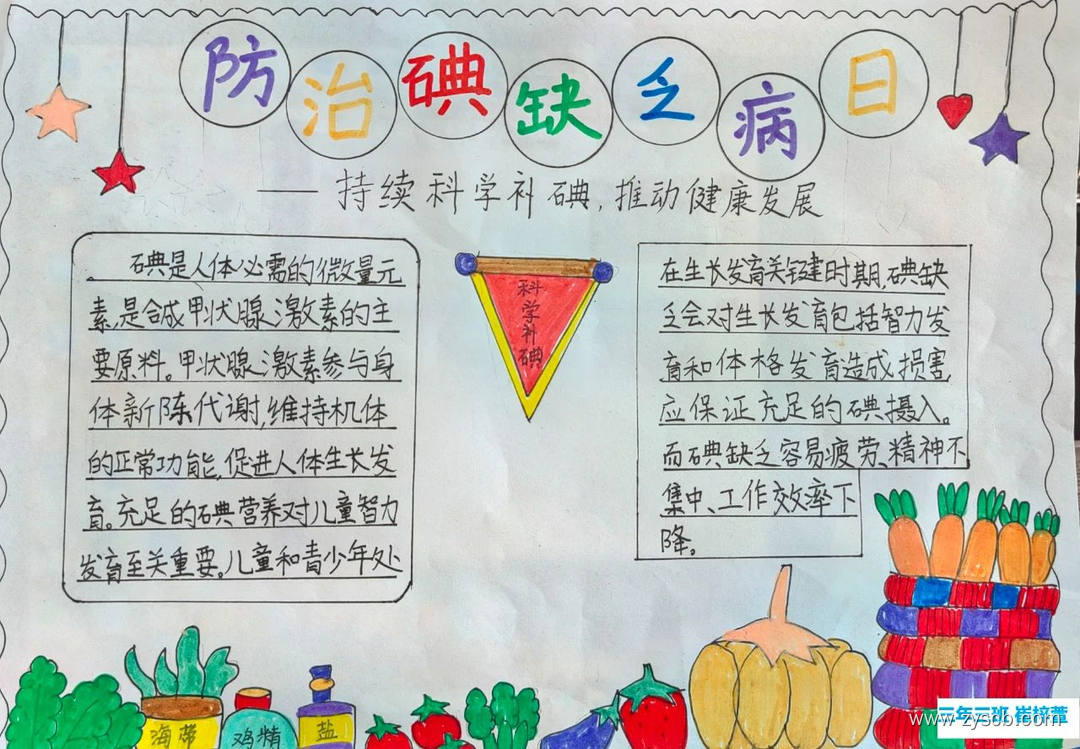 防治碘缺乏病日
——持续科学补碘,推动健康发展
碘是人体必需的微量元
素,是合成甲状腺激素的主
要原料。甲状腺激素参与身
体新陈代谢,维持机体
的正常功能,促进人体生长发
育。充足的碘营养对儿童智力
发育至关重要。儿童和青少年处
科学补碘
在生长发育关键时期,碘缺
乏会对生长发育包括智力发
育和体格发育造成损害,
应保证充足的碘摄入。
而碘缺乏容易疲劳、精神不
集中、工作效率下
降。
海带
鸡精
盐